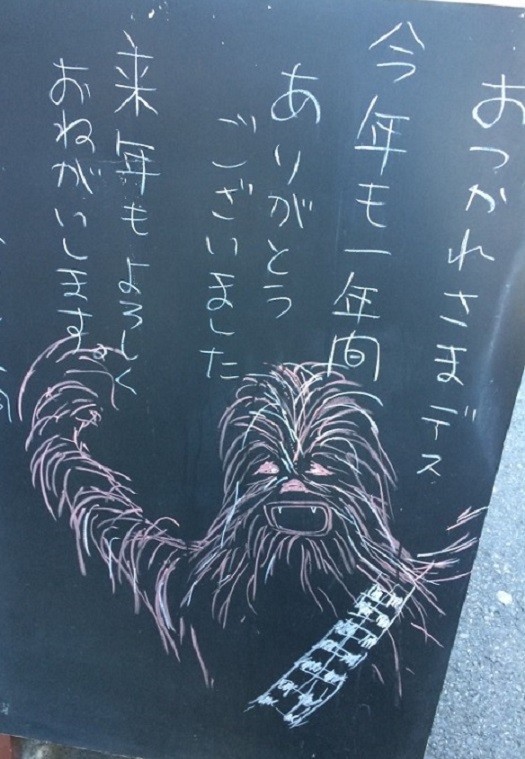 おつかれさまデス
今年も一年間
ありがとう
ございました
来年もよろしく
おねがいします。